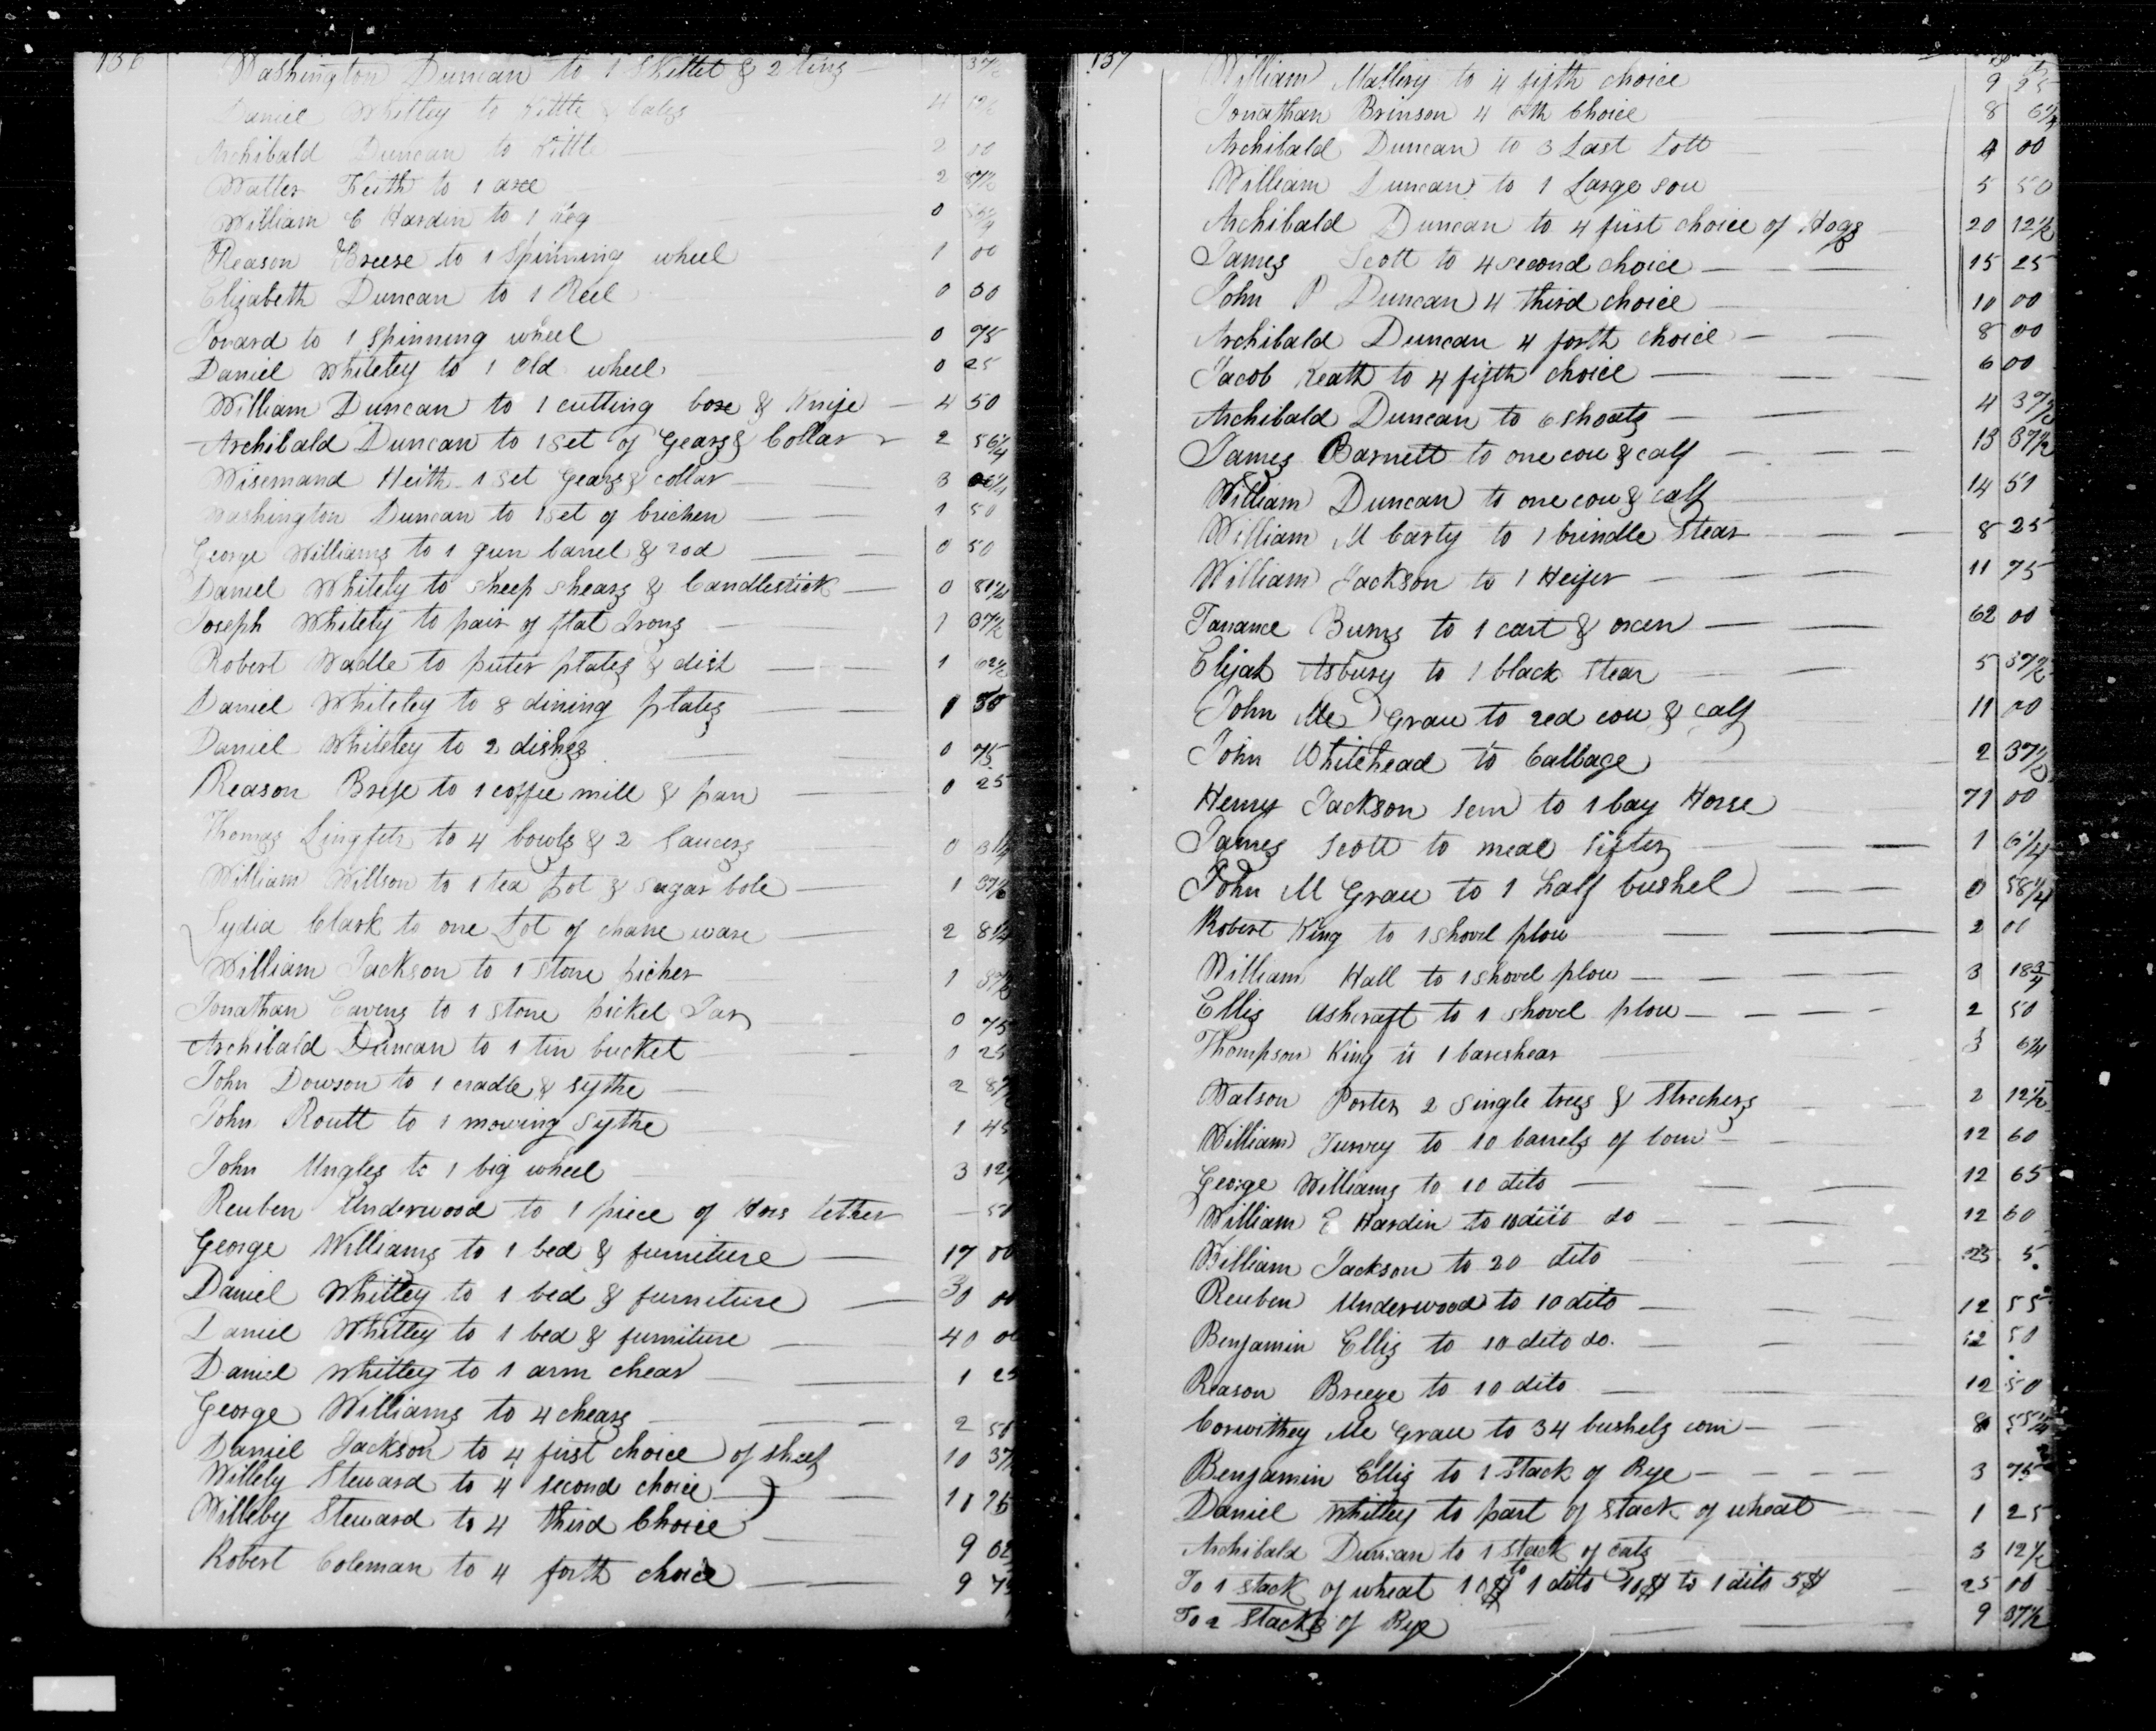 136
Washington Duncan to 1 Skillet & 2 tins 37½
Daniel Whitley to Kittle & balys 4
Archibald Duncan to Kittle 2 00
Walter Keith to 1 axe 2 87½
William C Hardin to 1 keg 0
Reason Breese to 1 Spinning wheel 1 00
Elizabeth Duncan to 1 Reel 0 50
Jovard to 1 spinning wheel 0 75
Daniel Whiteley to 1 Old wheel 0 25
William Duncan to 1 cutting boxe & Knife 4 50
Archibald Duncan to 1 set of Gears & Collar 2 56¼
Wisemand Keith 1 set Gears & collar 3 06¼
Washington Duncan to 1 set of brichen 1 50
George Williams to 1 gun barrel & rod 0 50
Daniel Whitely to sheep shears & Candlestick 0 81¼
Joseph Whitely to pair of flat Irons 1 37½
Robert Wadle to puter plates & dish 1 62½
Daniel Whiteley to 8 dining plates 1 50
Daniel Whiteley to 2 dishes 0 75
Reason Brese to 1 coffee mill & pan 0 25
Thomas Lingfetr to 4 bowls & 2 Saucers 0 31¼
William Willson to 1 tea pot & sugar bole 1 37½
Lydia Clark to one Lot of chane ware 2 81¼
William Jackson to 1 stone picher 1 37½
Jonathan Cavens to 1 stone pickel Jar 0 75
Archibald Duncan to 1 tin bucket 0 25
John Dowson to 1 cradle & sythe 2 87½
John Routt to 1 mowing sythe 1 45
John Ungles to 1 big wheel 3 12½
Reuben Underwood to 1 piece of Hors lether 50
George Williams to 1 bed & furniture 17 00
Daniel Whitley to 1 bed & furniture 30 00
Daniel Whitley to 1 bed & furniture 40 00
Daniel Whitley to 1 arm chear 1 25
George Williams to 4 chears 2 50
Daniel Jackson to 4 first choice of sheep 10 37½
Willely Steward to 4 second choice 11 25
Willeby Steward to 4 third Choice 9 02
Robert Coleman to 4 forth choice 9 75
137
William Mallery to 4 fifth choice 9 25
Jonathan Brinson 4 6th Choice 8 6¼
Archibald Duncan to 3 Last Lott 4 00
William Duncan to 1 Large sow 5 50
Archibald Duncan to 4 first choice of Hogs 20 12½
James Scott to 4 second choice 15 25
John P Duncan 4 third choice 10 00
Archibald Duncan 4 forth choice 8 00
Jacob Keath to 4 fifth choice 6 00
Archibald Duncan to 6 shoats 4 37½
James Barnett to one cow & calf 13 87½
William Duncan to one cow & calf 14 51
William M Carty to 1 brindle Stear 8 25
William Jackson to 1 Heifer 11 75
Tarrance Burns to 1 cart & oxen 62 00
Elijah Asbury to 1 black stear 5 37½
John Mc Grau to red cow & calf 11 00
John Whitehead to Cabbage 2 37½
Henry Jackson sen to 1 bay Horse 71 00
James Scott to meal sifter 1 6¼
John M Grau to 1 half bushel 0 58¼
Robert King to 1 shovel plow 2 00
William Hall to 1 shovel plow 3 18¾
Ellis Ashcraft to 1 shovel plow 2 50
Thompson King to 1 bareshear 3 6¼
Watson Porter 2 single trees & Strechers 2 12½
William Turvey to 10 barrels of corn 12 60
George Williams to 10 dito 12 65
William C Hardin to 10 dito do 12 60
William Jackson to 20 dito 25 5
Reuben Underwood to 10 dito 12 55
Benjamin Ellis to 10 dito do. 12 50
Reason Breeze to 10 dito 12 50
Corwithey Mc Grau to 34 bushels corn 8 55¼
Benjamin Ellis to 1 Stack of Rye 3 75
Daniel Whitley to part of stack of wheat 1 25
Archibald Duncan to 1 stack of oats 3 12½
To 1 stack of wheat 10$ to 1 dito 10$ to 1 dito 5$ 25 00
To 2 Stacks of Rye 9 37½